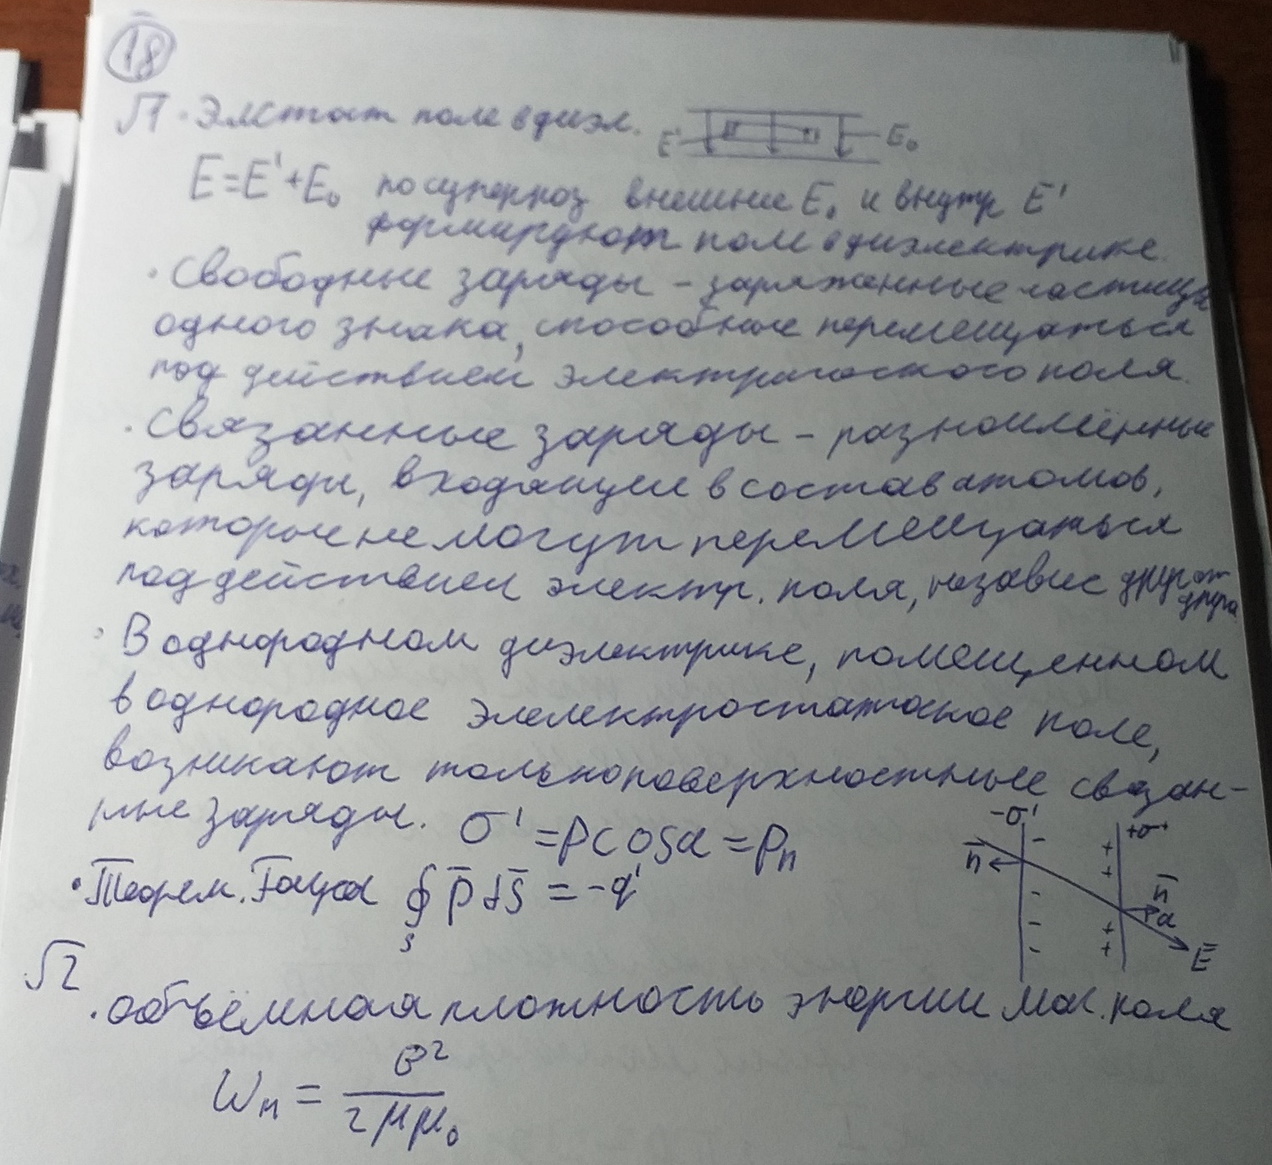 18
√1 · Элстат поле в диэл. E' E₀
E=E'+E₀ по суперпоз внешние E₀ и внутр E'
формируют поле в диэлектрике.
· Свободные заряды – заряженные частицы
одного знака, способные перемещаться
под действием электрического поля.
· Связанные заряды – разноимённые
заряды, входящие в состав атомов,
которые не могут перемещаться
под действием электр. поля, независ друг от друга
· В однородном диэлектрике, помещенном
в однородное элелектростатаское поле,
возникают только поверхностные связан-
ные заряды. σ' = pcosα = pₙ
-σ' +σ'
n̄ n̄ α Ē
· Теорем. Гауса ∮ₛ p̄ds̄ = -q'
√2
· объёмная плотность энергии маг. поля
Wₘ = B² / 2μμ₀